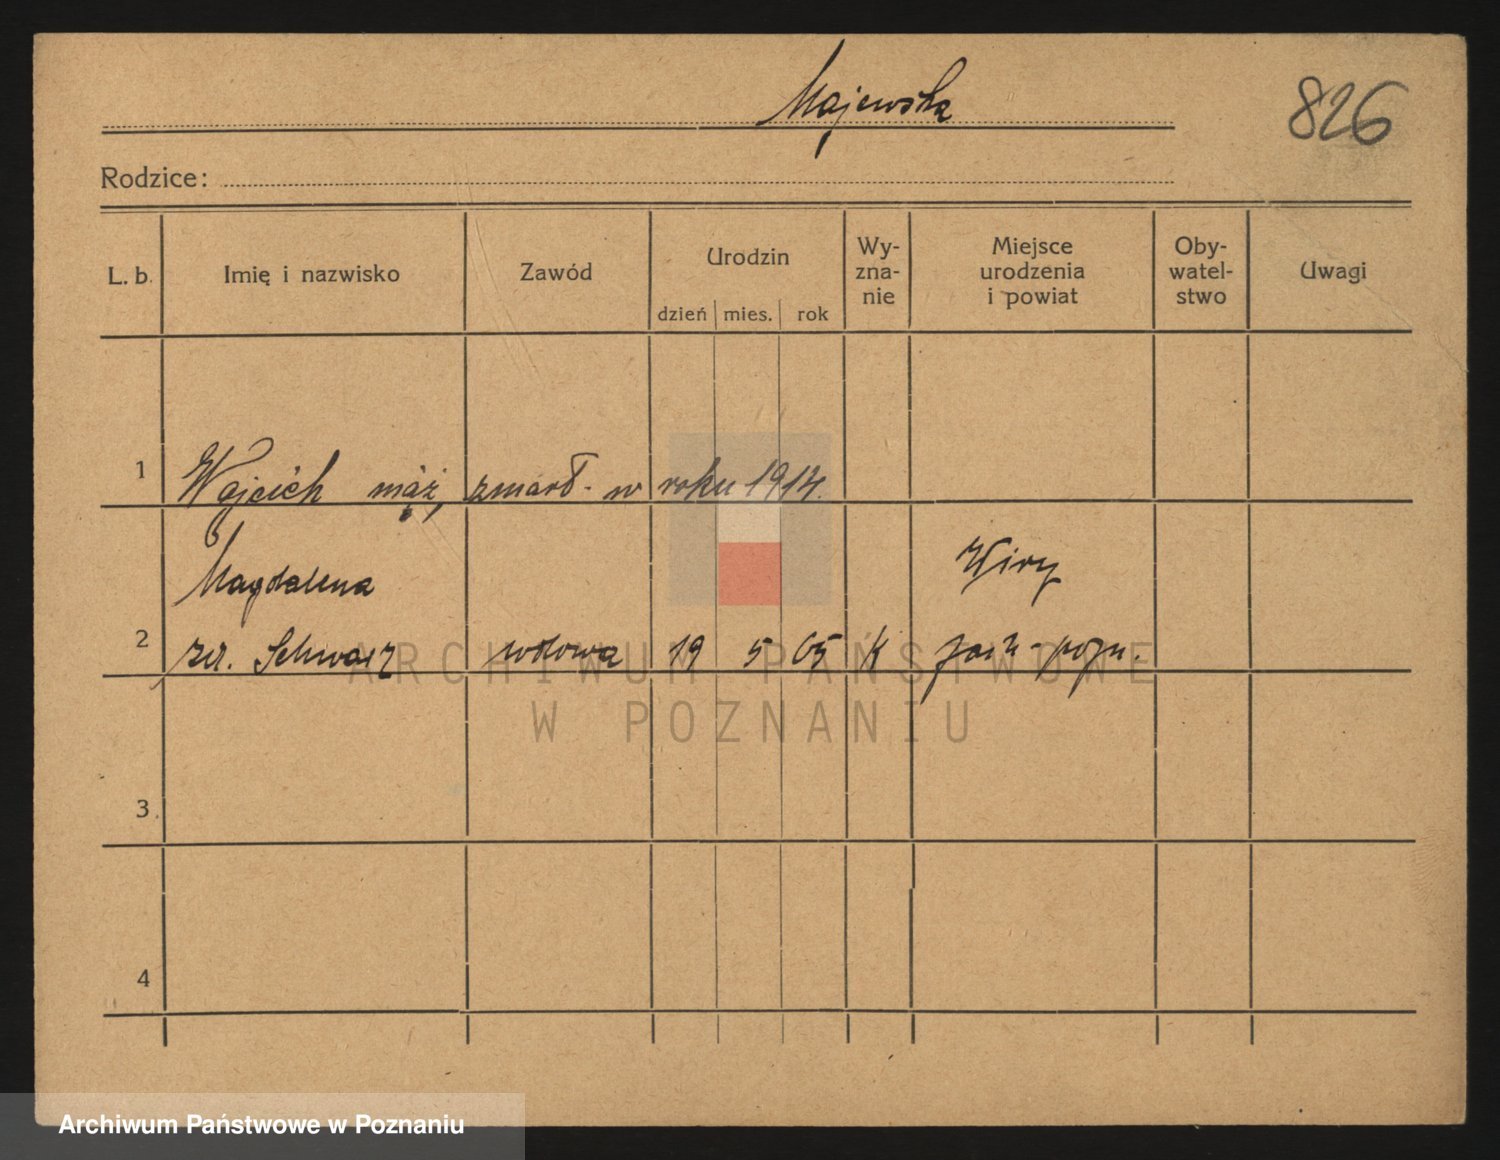 Majewska
826
Rodzice:
L. b. Imię i nazwisko Zawód Urodzin dzień mies. rok Wy-zna-nie Miejsce urodzenia i powiat Oby-watel-stwo Uwagi
1 Wojciech mąż, zmarł. w roku 1914.
Magdalena Wiry
2 zd. Schwarz wdowa 19 5 65 K pow. pozn.
3.
4
ARCHIWUM PAŃSTWOWE
W POZNANIU
Archiwum Państwowe w Poznaniu